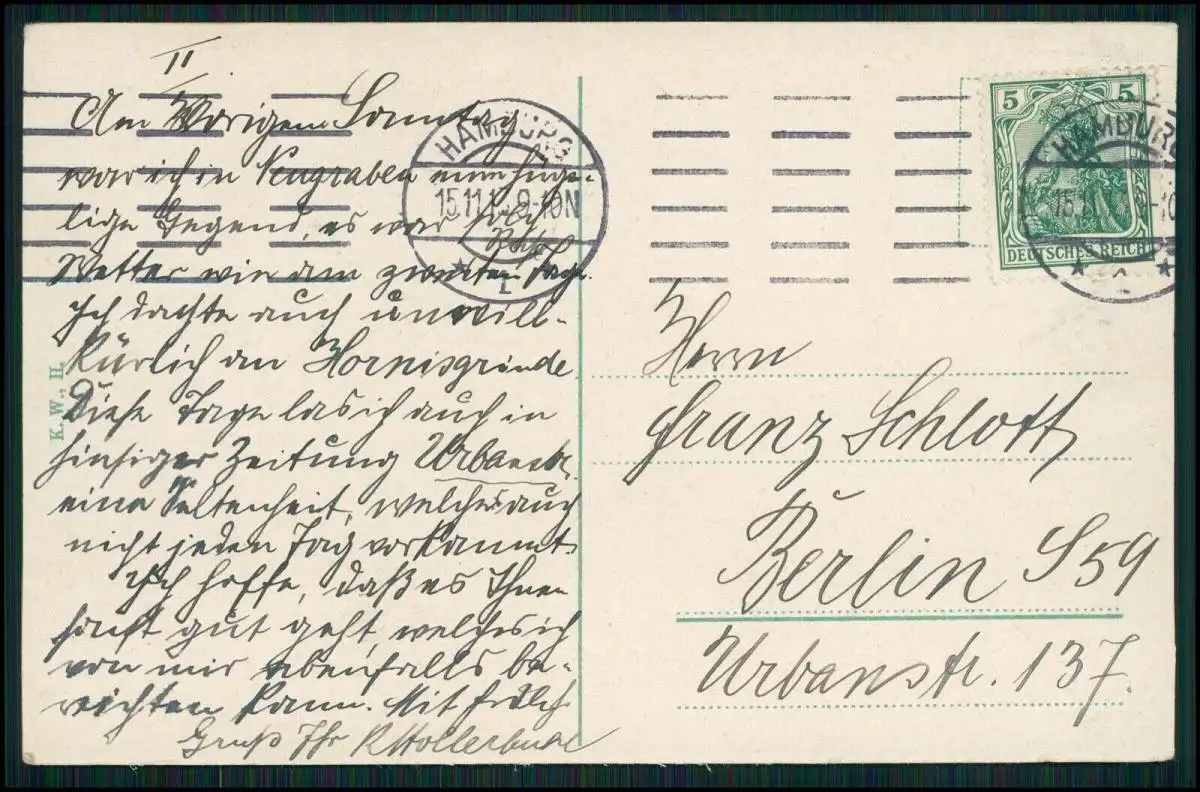 II
Am Vorigem Sonntag
war ich in Neugraben eine hüge-
lige Gegend, es war solch
Wetter wie am zweiten Tage.
Ich dachte auch unwill-
kürlich an Hornisgrinde.
Diese Tage las ich auch in
hiesiger Zeitung Urbanstr.
eine Seltenheit, welches auch
nicht jeden Tag vorkommt
Ich hoffe, daß es Ihnen
gut geht, welches ich
von mir ebenfalls be-
richten kann. Mit
Gruß Ihr
K. W., H.
HAMBURG
15.11.1 9-10N
1
5 5
DEUTSCHES REICH
HAMBURG
Herrn
Franz Schlott
Berlin S 59
Urbanstr. 137.